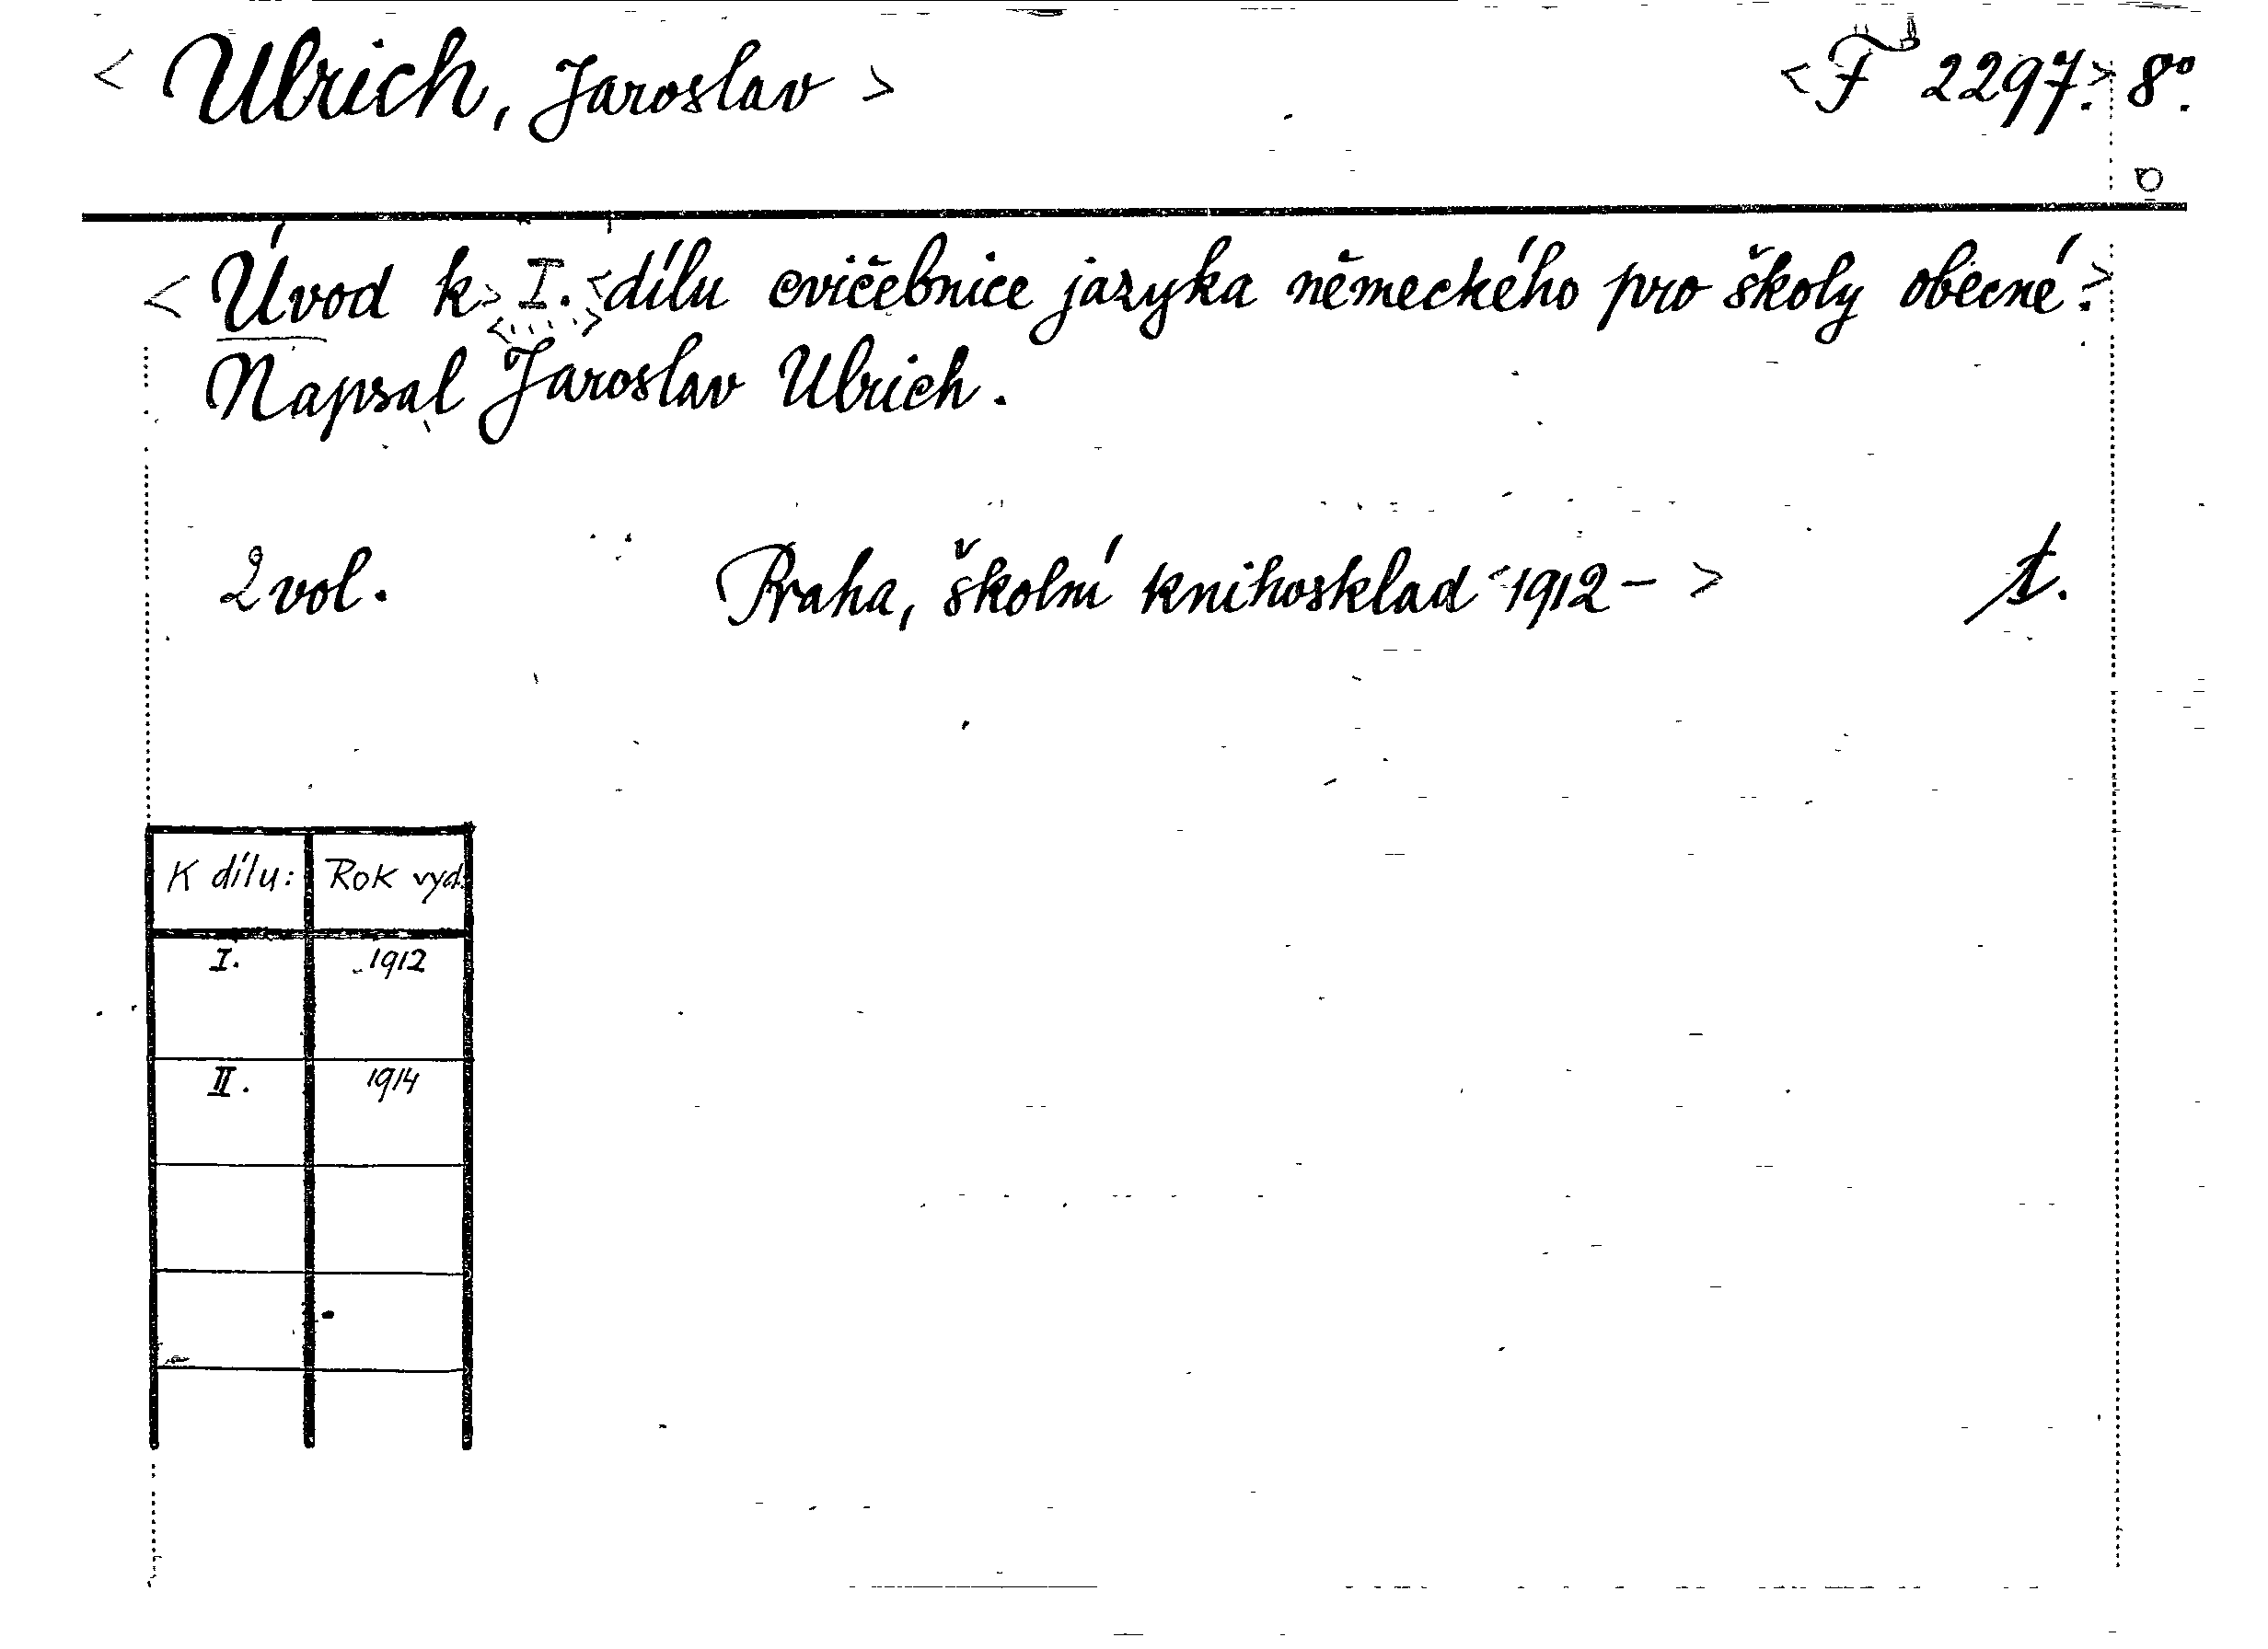 < Ulrich, Jaroslav > <F 2297.> 8°.
< Úvod k > I. < dílu cvičebnice jazyka německého pro školy obecné. >
< ..... >
Napsal Jaroslav Ulrich.
2 vol. Praha, školní knihosklad <1912 - > t.
K dílu: Rok vyd.
I. 1912
II. 1914